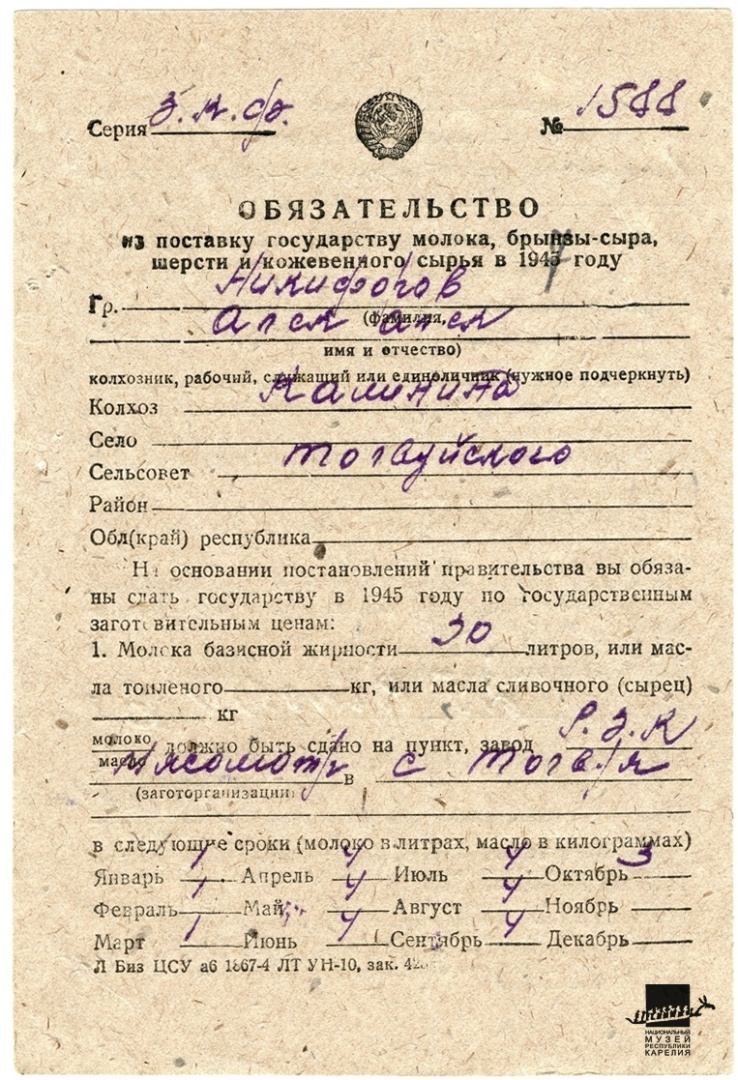 Серия З.К.ф. № 1588
ОБЯЗАТЕЛЬСТВО
на поставку государству молока, брынзы-сыра,
шерсти и кожевенного сырья в 1947 году
Гр. Никифоров
(фамилия,
Алек Алек
имя и отчество)
колхозник, рабочий, служащий или единоличник (нужное подчеркнуть)
Колхоз Калинина
Село
Сельсовет Толвуйского
Район
Обл(край) республика
На основании постановлений правительства вы обяза-
ны сдать государству в 1945 году по государственным
заготовительным ценам:
1. Молока базисной жирности 30 литров, или мас-
ла топленого кг, или масла сливочного (сырец)
кг
молоко
масло должно быть сдано на пункт, завод
в с Толвуя
(заготорганизации)
в следующие сроки (молоко в литрах, масло в килограммах)
Январь 1 Апрель 4 Июль 4 Октябрь 3
Февраль 1 Май 4 Август 4 Ноябрь
Март 1 Июнь 4 Сентябрь 4 Декабрь
Л Биз ЦСУ аб 1867-4 ЛТ УН-10, зак.
НАЦИОНАЛЬНЫЙ
МУЗЕЙ
РЕСПУБЛИКИ
КАРЕЛИЯ